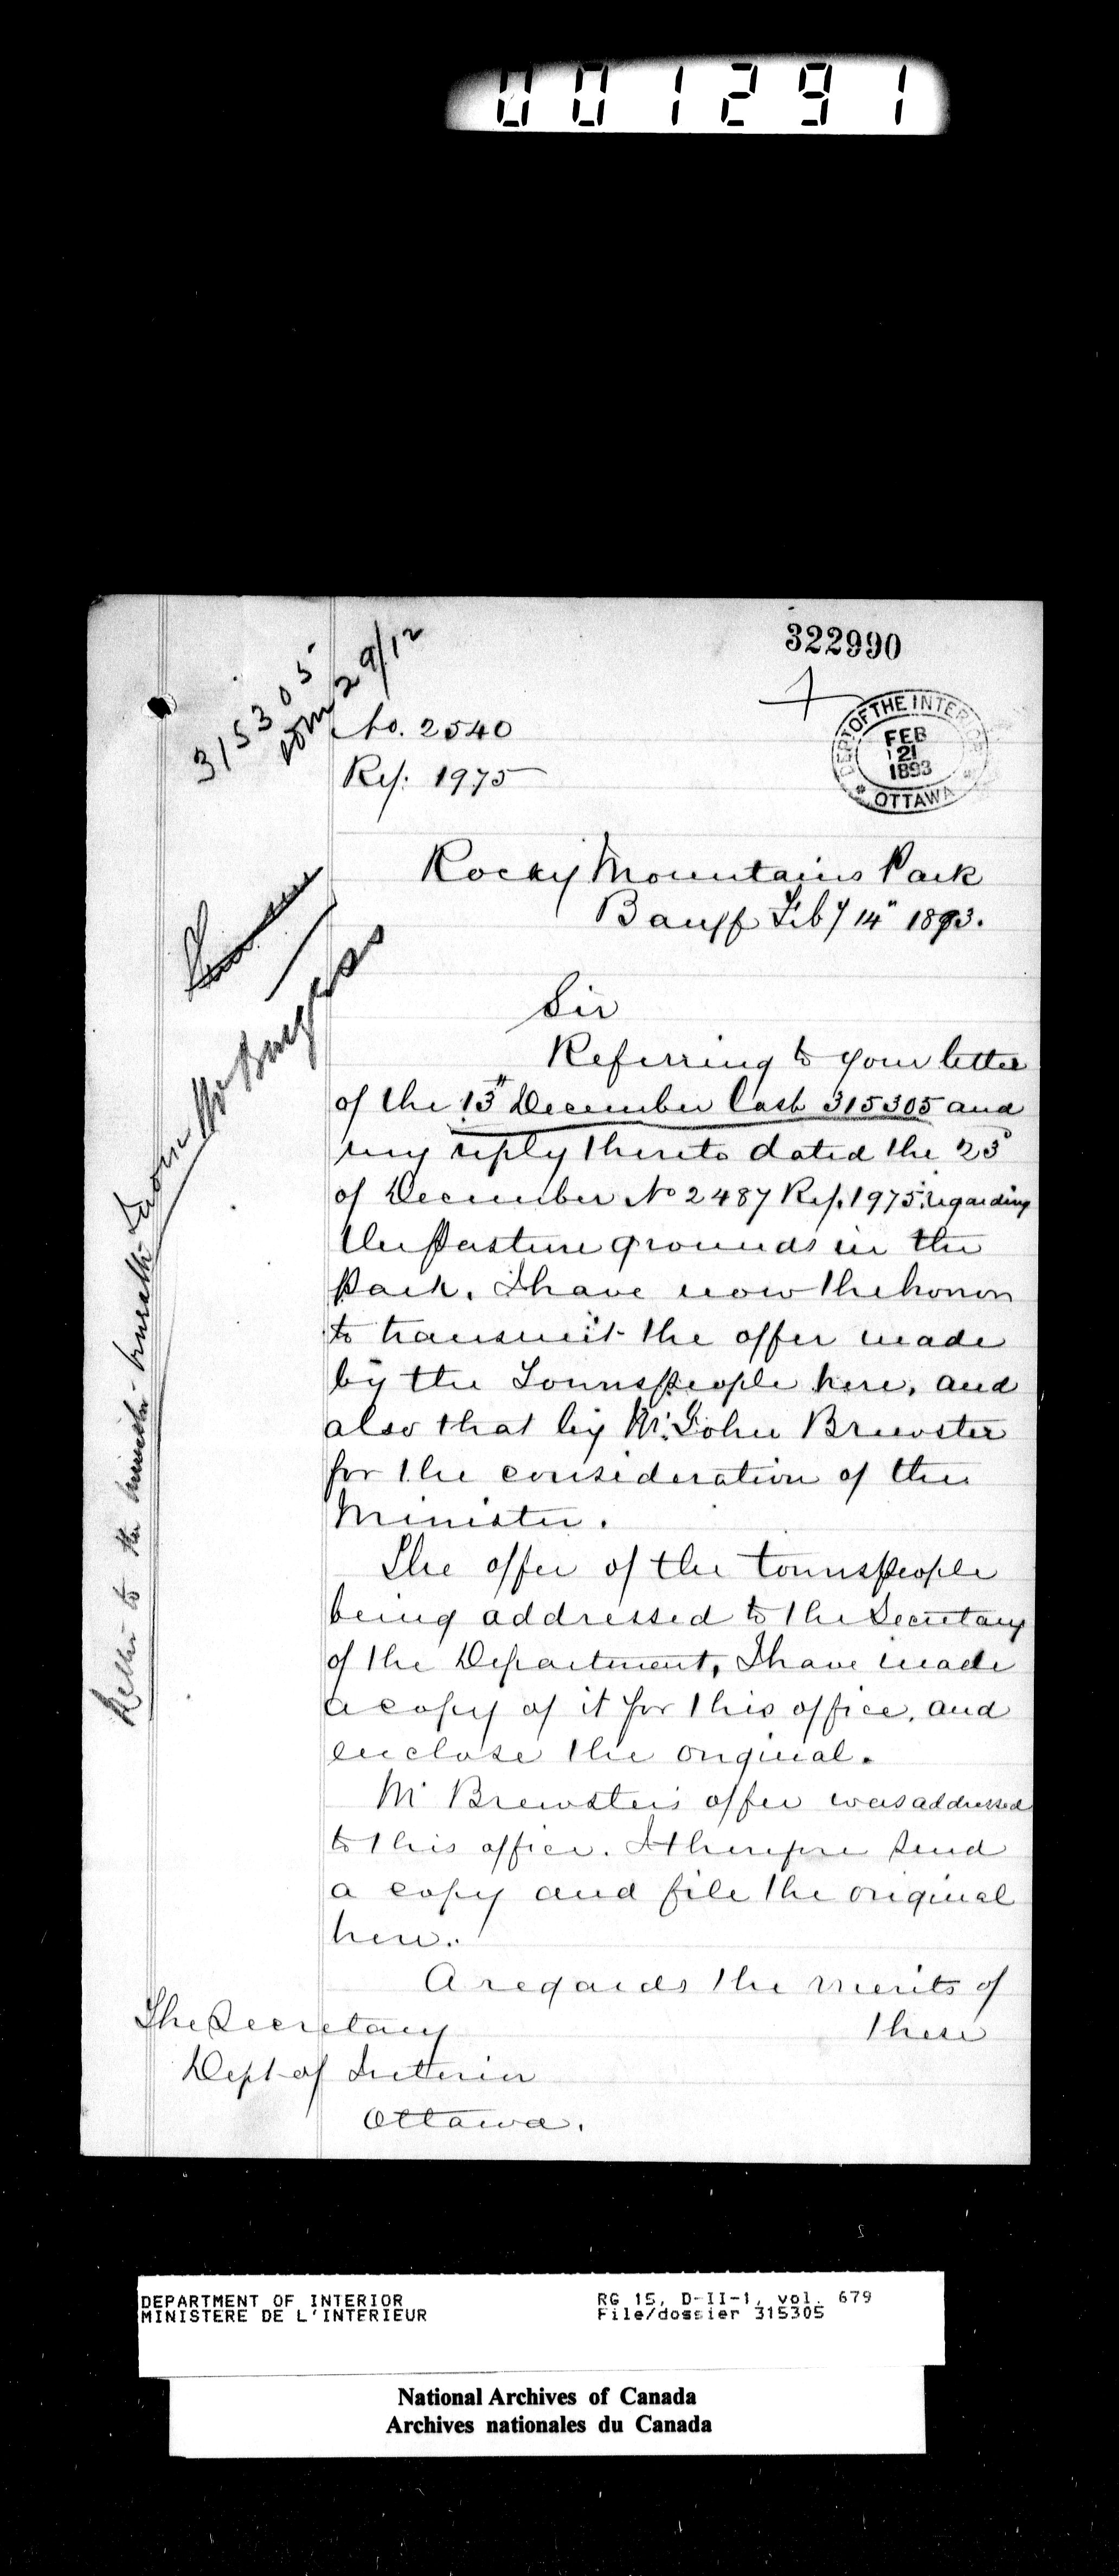 001291
322990
315305
29/12
No. 2540
Ref: 1975
DEPT. OF THE INTERIOR
FEB
21
1893
OTTAWA
Rocky Mountains Park
Banff Feby 14" 1893.
Sir
Referring to your letter
of the 13th December last 315305 and
my reply thereto dated the 23d
of December No 2487 Ref. 1975 regarding
the pasture grounds in the
Park. I have now the honor
to transmit the offer made
by the Townspeople here, and
also that by Mr. John Brewster
for the consideration of the
Minister.
The offer of the townspeople
being addressed to the Secretary
of the Department, I have made
a copy of it for this office, and
enclose the original.
Mr Brewster's offer was addressed
to this office. I therefore send
a copy and file the original
here.
A regards the merits of
these
The Secretary
Dept of Interior
Ottawa.
Mr Burgess
Letter to the minister
DEPARTMENT OF INTERIOR
MINISTERE DE L'INTERIEUR
RG 15, D-II-1, vol. 679
File/dossier 315305
National Archives of Canada
Archives nationales du Canada